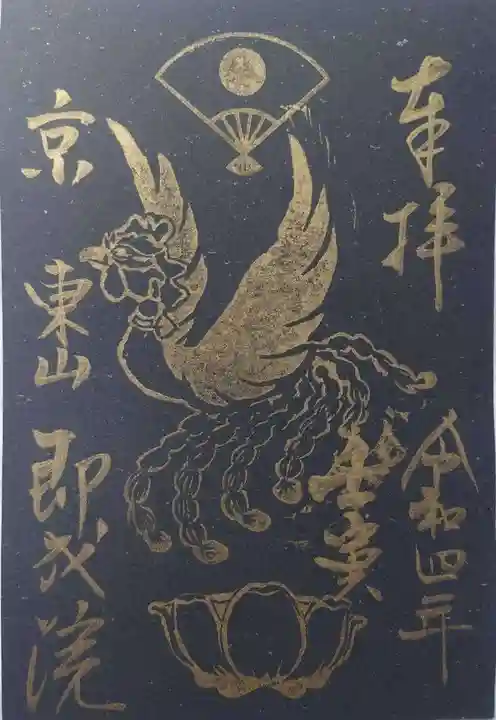 奉拝
令和四年
壬寅
京
東山
即成院